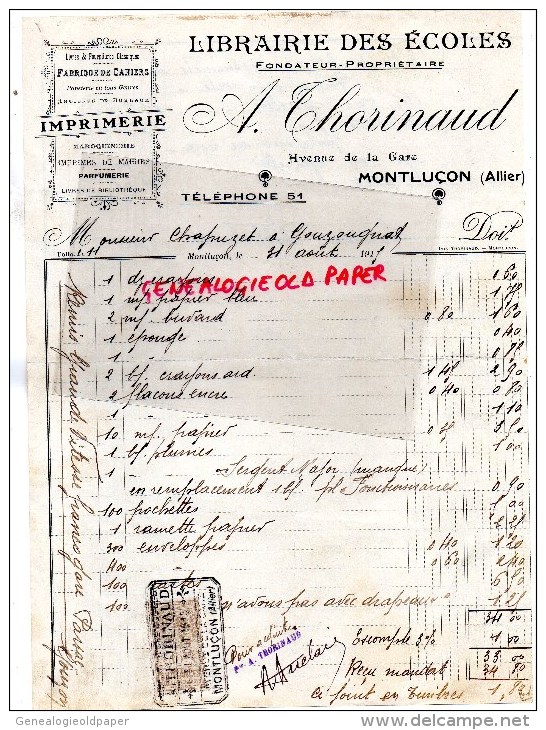 Livres & Fournitures Classiques
FABRIQUE DE CAHIERS
Papeterie en tous Genres
ARTICLES DE BUREAUX
IMPRIMERIE
MAROQUINERIE
IMPRIMÉS DE MAIRIES
PARFUMERIE
LIVRES DE BIBLIOTHÈQUE
LIBRAIRIE DES ÉCOLES
FONDATEUR-PROPRIÉTAIRE
A. Thorinaud
Avenue de la Gare
MONTLUÇON (Allier)
TÉLÉPHONE 51
Monsieur Chapuzet à Gouzougnat Doit
Folio Montluçon, le 31 août 191
IMP. THORINAUD. — MONTLUÇON.
GENEALOGIE OLD PAPER
1 0 60
1 papier bleu 1 70
2 buvard 0 80 1 60
1 éponge 0 40
1
2 bt crayons ard 1 45 2 90
2 flacons encre 0 40 0 80
1 1 10
10 papier
1 bt plumes 1 00
Sergent Major (manque)
en remplacement 1 bt pl Fonctionnaires 0 90
100 pochettes 1 00
1 ramette papier 2 25
300 enveloppes 0 40 1 20
0 60 2 40
100
100 n'avons pas avec drapeaux 1 25
34 00
Escompte 3% 1 00
33 00
Reçu mandat 34 80
ci joint en timbres 1,80
Remis Grande Vitesse franco gare
Pour acquit
Pon A. THORINAUD
A. THORINAUD
MONTLUÇON (Allier)
Genealogieoldpaper
www.delcampe.net